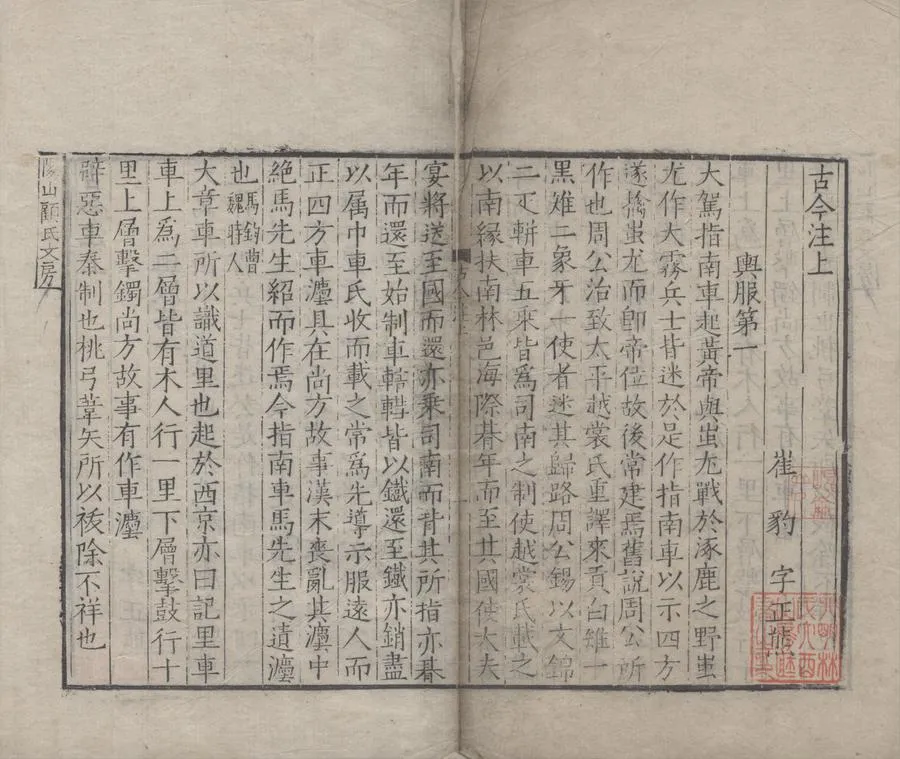 古今注上
崔豹 字正熊
輿服第一
大駕指南車起黃帝與蚩尤戰於涿鹿之野蚩
尤作大霧兵士皆迷於是作指南車以示四方
遂擒蚩尤而卽帝位故後常建焉舊說周公所
作也周公治致太平越裳氏重譯來貢白雉一
黑雉二象牙一使者迷其歸路周公錫以文錦
二疋軿車五乘皆爲司南之制使越裳氏載之
以南緣扶南林邑海際朞年而至其國使大夫
宴將送至國而還亦乘司南而背其所指亦朞
年而還至始制車轄轊皆以鐵還至鐵亦銷盡
以属巾車氏收而載之常爲先導示服遠人而
正四方車灋具在尚方故事漢末喪亂其灋中
絶馬先生紹而作焉今指南車馬先生之遺灋
也 馬鈞曹魏時人
大章車所以識道里也起於西京亦曰記里車
車上爲二層皆有木人行一里下層擊鼓行十
里上層擊鐲尚方故事有作車灋
辟惡車秦制也桃弓葦矢所以祓除不祥也
陽山顧氏文房